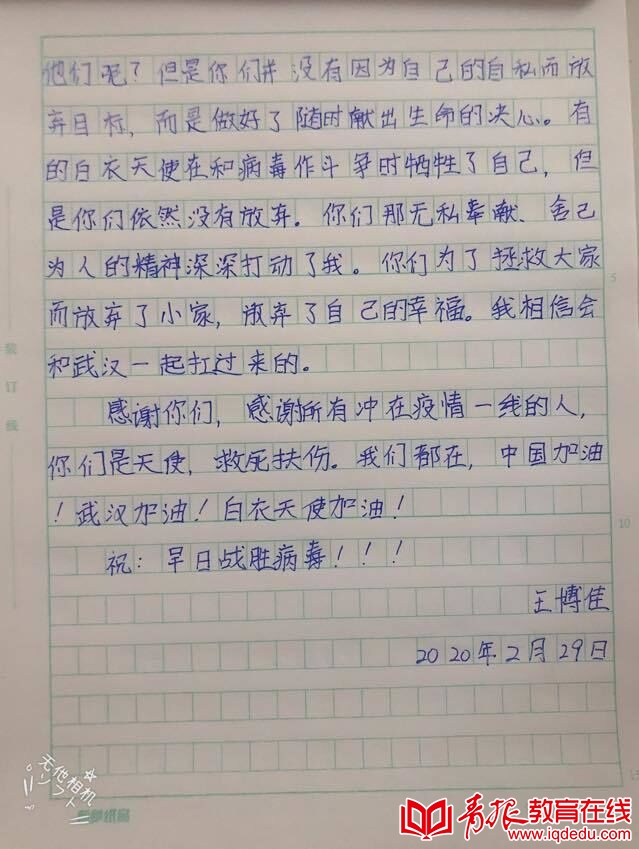 他们呢？但是你们并没有因为自己的自私而放
弃目标，而是做好了随时献出生命的决心。有
的白衣天使在和病毒作斗争时牺牲了自己，但
是你们依然没有放弃。你们那无私奉献、舍己
为人的精神深深打动了我。你们为了拯救大家
而放弃了小家，放弃了自己的幸福。我相信会
和武汉一起扛过来的。
感谢你们，感谢所有冲在疫情一线的人，
你们是天使，救死扶伤。我们都在，中国加油
！武汉加油！白衣天使加油！
祝：早日战胜病毒！！！
王博佳
2020年2月29日
装订线
5
10
无他相机
ソフト
青报教育在线
www.iqdedu.com